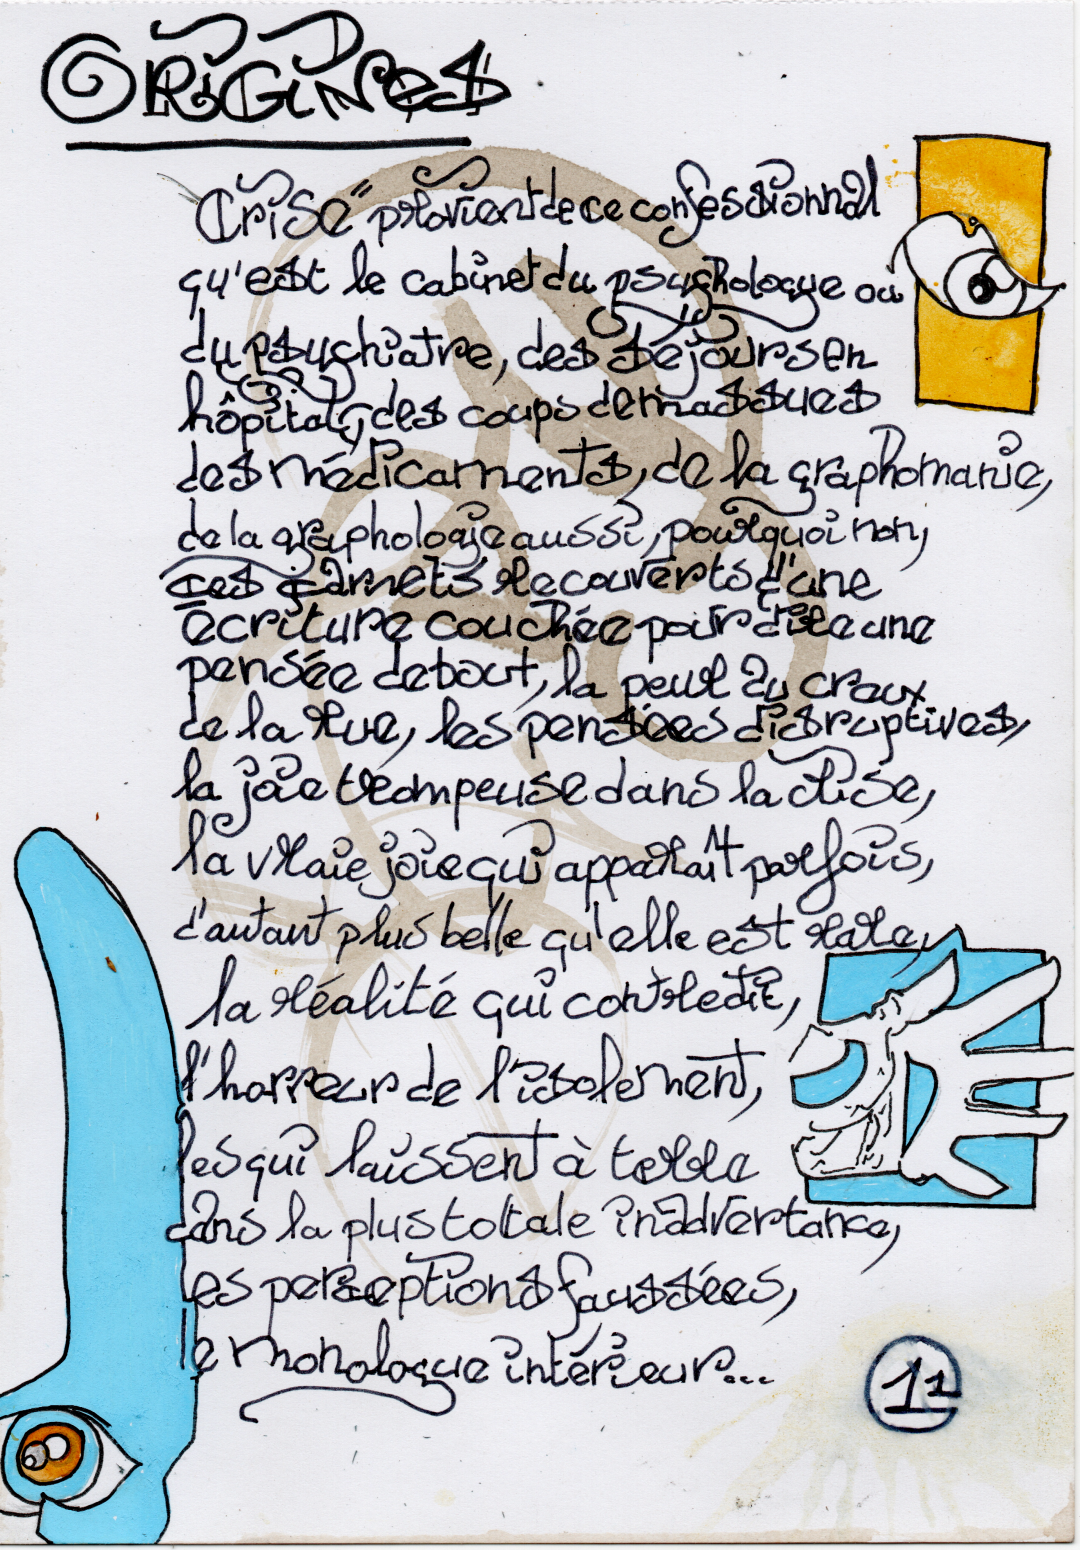 ORIGINES
Crise" provient de ce confessionnal
qu'est le cabinet du psychologue ou
du psychiatre, des séjours en
hôpital, des coups de massues
des médicaments, de la graphomanie,
de la graphologie aussi, pourquoi non,
ces carnets recouverts d'une
écriture couchée pour dire une
pensée debout, la peur du creux
de la rue, les pensées disruptives,
la joie trompeuse dans la crise,
la vraie joie qui apparaît parfois,
d'autant plus belle qu'elle est rare,
la réalité qui contredit,
l'horreur de l'isolement,
les qui laissent à terre
dans la plus toltale inadvertance,
les perceptions faussées,
le monologue intérieur...
11